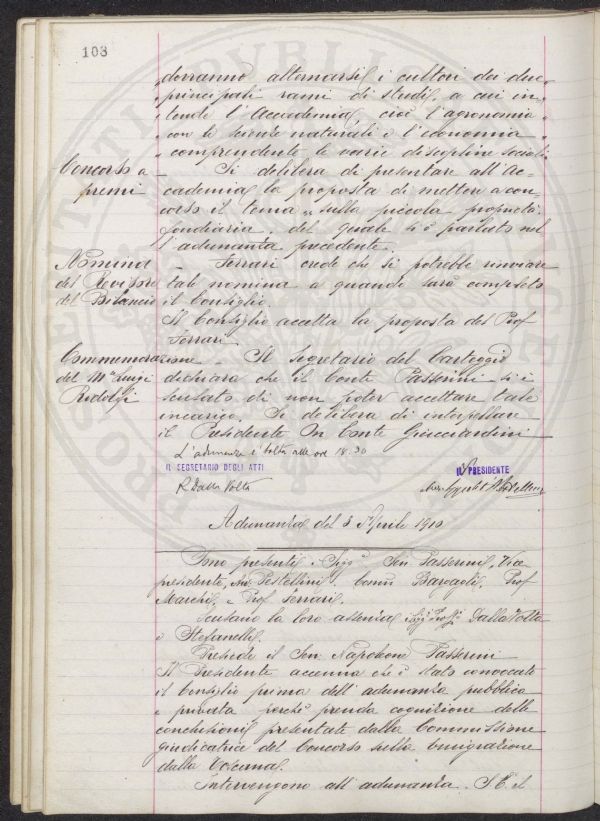 103
„ dovranno alternarsi i cultori dei due „
„ principali rami di studi, a cui in- „
„ tende l'Accademia, cioè l'agronomia „
„ con le scienze naturali e l'economia „
„ comprendente le varie discipline sociali
Concorso a premi — Si delibera di presentare all'Ac-
cademia la proposta di mettere a con-
corso il tema „ sulla piccola proprietà
fondiaria „ del quale si è parlato nel
l'adunanza precedente.
Nomina — Ferrari crede che si potrebbe rinviare
del Revisore tale nomina a quando sarà completo
del Bilancio il Consiglio.
Il Consiglio accetta la proposta del Prof
Ferrari.
Commemorazione — Il Segretario del Carteggio
del Mse Luigi dichiara che il Conte Passerini si è
Ridolfi scusato di non poter accettare tale
incarico. Si delibera di interpellare
il Presidente On Conte Guicciardini
L'adunanza è tolta alle ore 18.30
IL SEGRETARIO DEGLI ATTI
IL PRESIDENTE
R Dalla Volta
Adunanza del 3 Aprile 1910
Sono presenti i Sigg Sen Passerini, Vice
presidente, Pestellini, Comm Bargagli, Prof
Marchi, e Prof. Ferrari.
Scusano la loro assenza i Sigg Proff Dalla Volta
e Stefanelli.
Presiede il Sen. Napoleone Passerini
Il Presidente accenna che è stato convocato
il Consiglio prima dell'adunanza pubblica
e privata perchè prenda cognizione delle
conclusioni presentate dalla Commissione
giudicatrice del Concorso sulla emigrazione
dalla Toscana.
Intervengono all'adunanza S. E. il